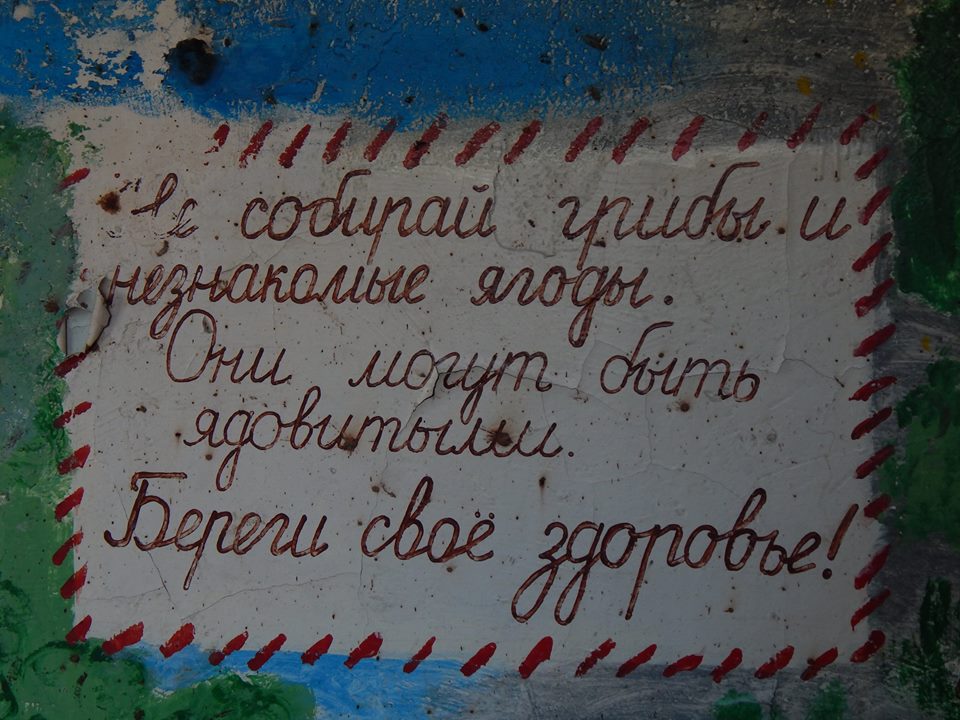 Не собирай грибы и
незнакомые ягоды.
Они могут быть
ядовитыми.
Береги своё здоровье!